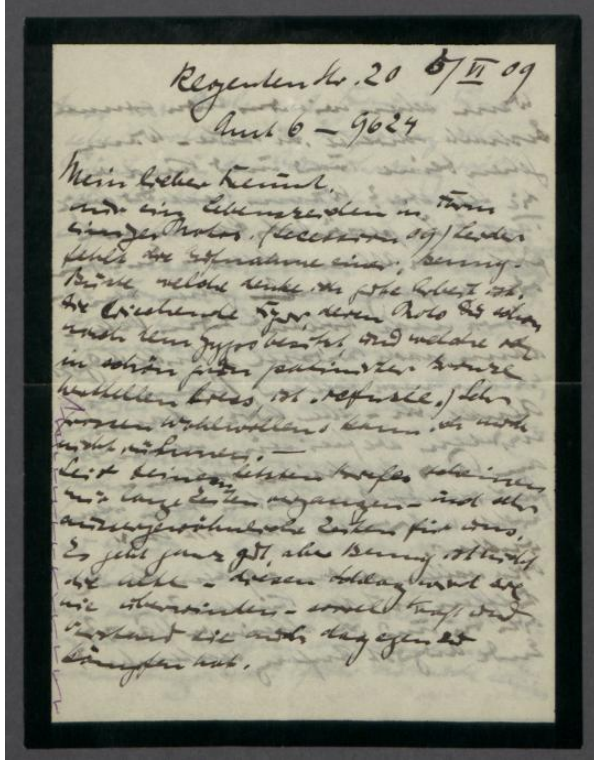 Regentenstr. 20 5/VI 09
Amt 6 – 9624
Mein lieber Freund,
nur ein Lebenszeichen in Form
einiger Photos. (Secession 09) Leider
fehlt die Aufnahme einer Benny-
Büste welche denke ich gute Arbeit ist.
Die kriechende Figur deren Photo Du schon
nach dem Gyps besitzt und welche ich
in schön grün patinirter Bronze
herstellen liess ist "refusée".) Sehr
grossen Wohlwollens kann ich mich
nicht rühmen. –
Seit Deinem letzten Briefe scheinen
mir lange Zeiten vergangen – und sehr
aussergewöhnliche Zeiten für uns.
Es geht ganz gut, aber Benny ist nicht
die alte – diesen Schlag wird sie
nie überwinden – soviel Kraft und
Verstand sie auch dagegen zu
kämpfen hat.